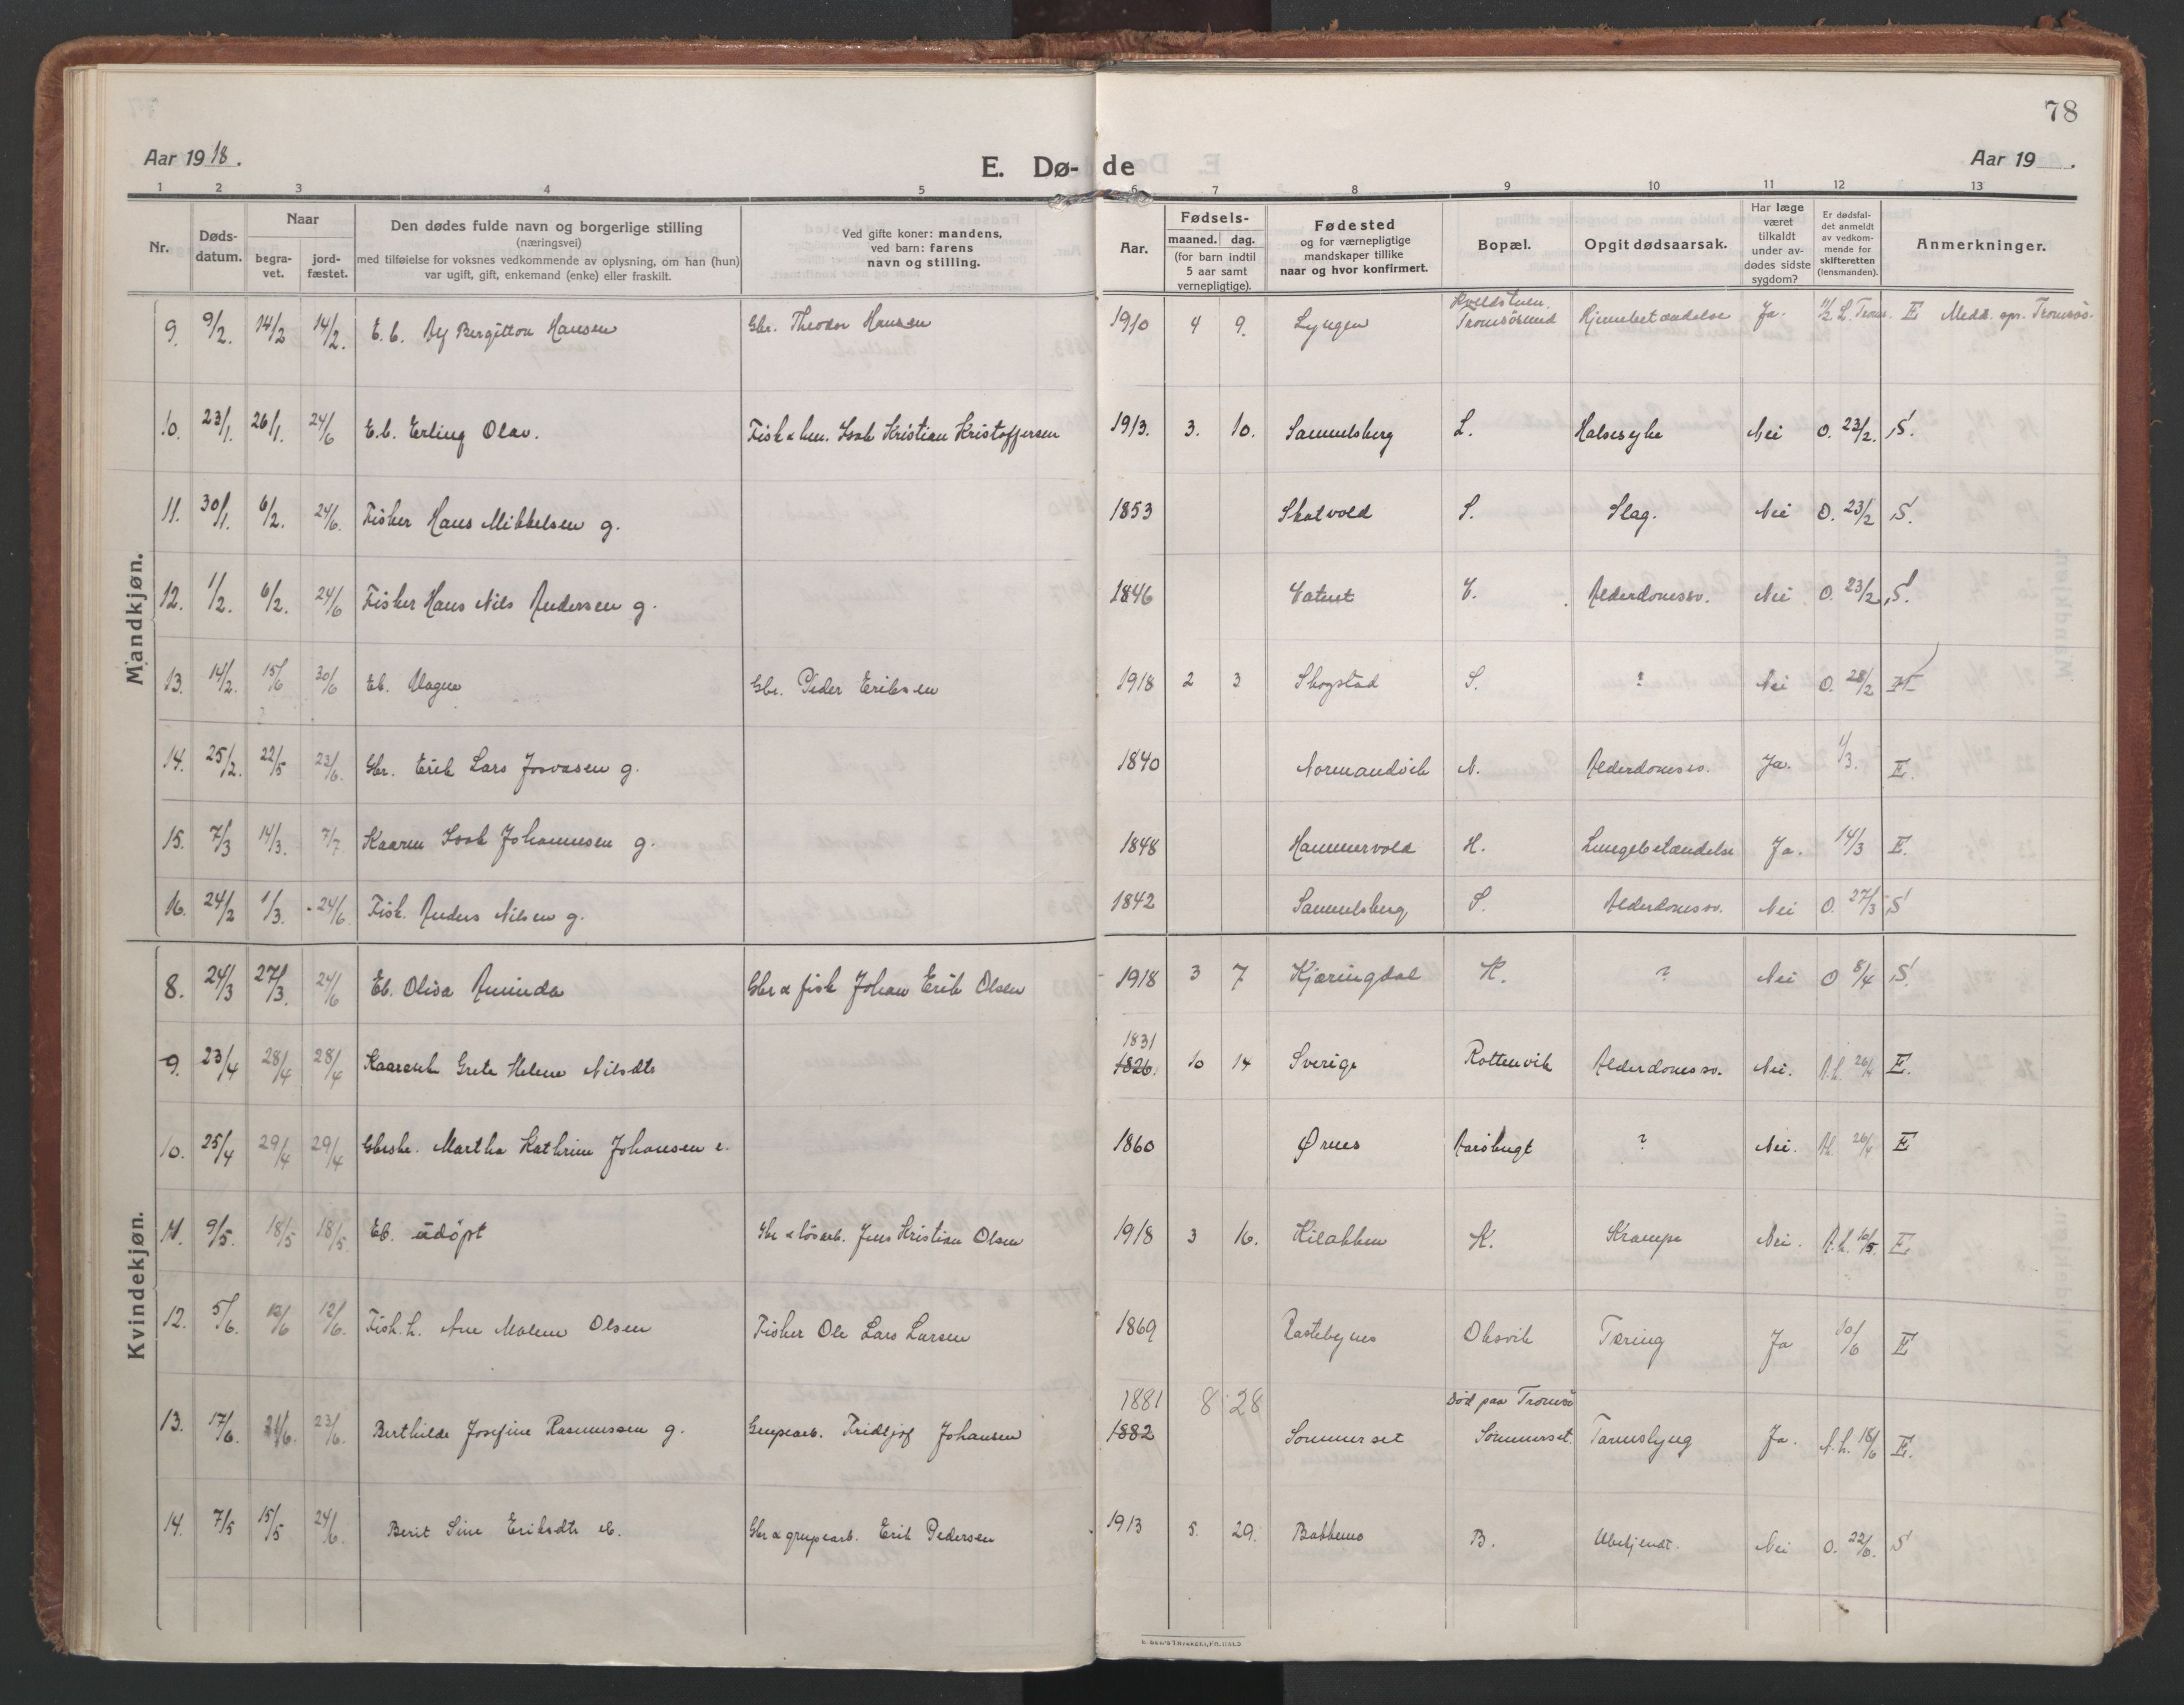 78
Aar 1918.
E. Dø- de
Aar 19 .
1 2 3 4 5 6 7 8 9 10 11 12 13
Nr.
Døds-
datum.
Naar
begra-
vet.
jord-
fæstet.
Den dødes fulde navn og borgerlige stilling
(næringsvei)
med tilføielse for voksnes vedkommende av oplysning, om han (hun)
var ugift, gift, enkemand (enke) eller fraskilt.
Ved gifte koner: mandens,
ved barn: farens
navn og stilling.
Aar.
Fødsels-
maaned. dag.
(for barn indtil
5 aar samt
vernepligtige).
Fødested
og for værnepligtige
mandskaper tillike
naar og hvor konfirmert.
Bopæl.
Opgit dødsaarsak.
Har læge
været
tilkaldt
under av-
dødes sidste
sygdom?
Er dødsfal-
det anmeldt
av vedkom-
mende for
skifteretten
(lensmanden).
Anmerkninger.
Mandkjøn.
9. 9/2. 14/2 14/2. E. b. Alf Bergitton Hansen Gbr. Theodor Hansen 1910 4 9. Lyngen Tromsösund Hjernebetændelse Ja. E Medd. spr. Tromsøs.
10. 23/1. 26/1. 24/6 E.b. Erling Olav. Fisk & hm. Isak Kristian Kristoffersen 1913. 3. 10. Samuelsberg L. Halsesyke Nei O. 23/2. S.
11. 30/1. 6/2. 24/6. Fisker Hans Mikkelsen g. 1853 Skatvold S. Slag. Nei O. 23/2 S.
12. 1/2. 6/2. 24/6 Fisker Hans Nils Andersen g. 1846 V. Alderdomssv. Nei O. 23/2 S.
13. 14/2. 15/6 30/6 Eb. Magne Gbr. Peder Eriksen 1918 2 3 Skogstad S. ? Nei O. 28/2
14. 25/2. 22/5 23/6. Gbr. Erik Lars Josvasen g. 1840 Normandvik N. Alderdomssv. Ja. 1/3. E.
15. 7/3 14/3. 7/7 Kaaren Isak Johannesen g. 1848 Hammervold H. Lungebetændelse Ja. 14/3 E.
16. 24/2 1/3. 24/6. Fisk. Anders Nilsen g. 1842 Samuelsberg S. Alderdomssv. Nei O. 27/3 S
Kvindekjøn.
8. 24/3 27/3. 24/6 Eb. Oliva Aminda Gbr & fisk Johan Erik Olsen 1918 3 7 Kjæringdal K. ? Nei O 8/4 S.
1831
9. 23/4 28/4 28/4 Kaarenk Grete Helene Nilsdtr 1826. 10 14 Sverige Rottenvik Alderdomssv. Nei. A.L. 26/4 E.
10. 25/4 29/4 29/4 Gbrske. Martha Kathrine Johansen e. 1860 Ørnes Aarsbugt ? Nei. 26/4 E
11. 9/5. 18/5 18/5. Eb. udöpt Gbr & lösarb. Jens Kristian Olsen 1918 3 16. Kilakken K. Krampe Nei. A.L. 10/5. E
12. 5/6. 12/6 12/6. Fisk.h. Ane Malene Olsen Fisker Ole Lars Larsen 1869 Rastebynes Oksvik Tæring Ja 10/6 E
1881 8 28 Död paa Tromsö
13. 17/6. 21/6. 23/6. Berthilde Josefine Rasmussen g. Grupearb. Fridtjof Johansen 1882 Sommerset Sommerset. Tarmslyng Ja. A.L. 18/6 E.
14. 7/5 15/5 24/6. Berit Sine Eriksdtr eb. Gbr & grupearb. Erik Pedersen 1913 5. 29. Bakkemo B. Ubekjendt. Nei O. 22/6. S